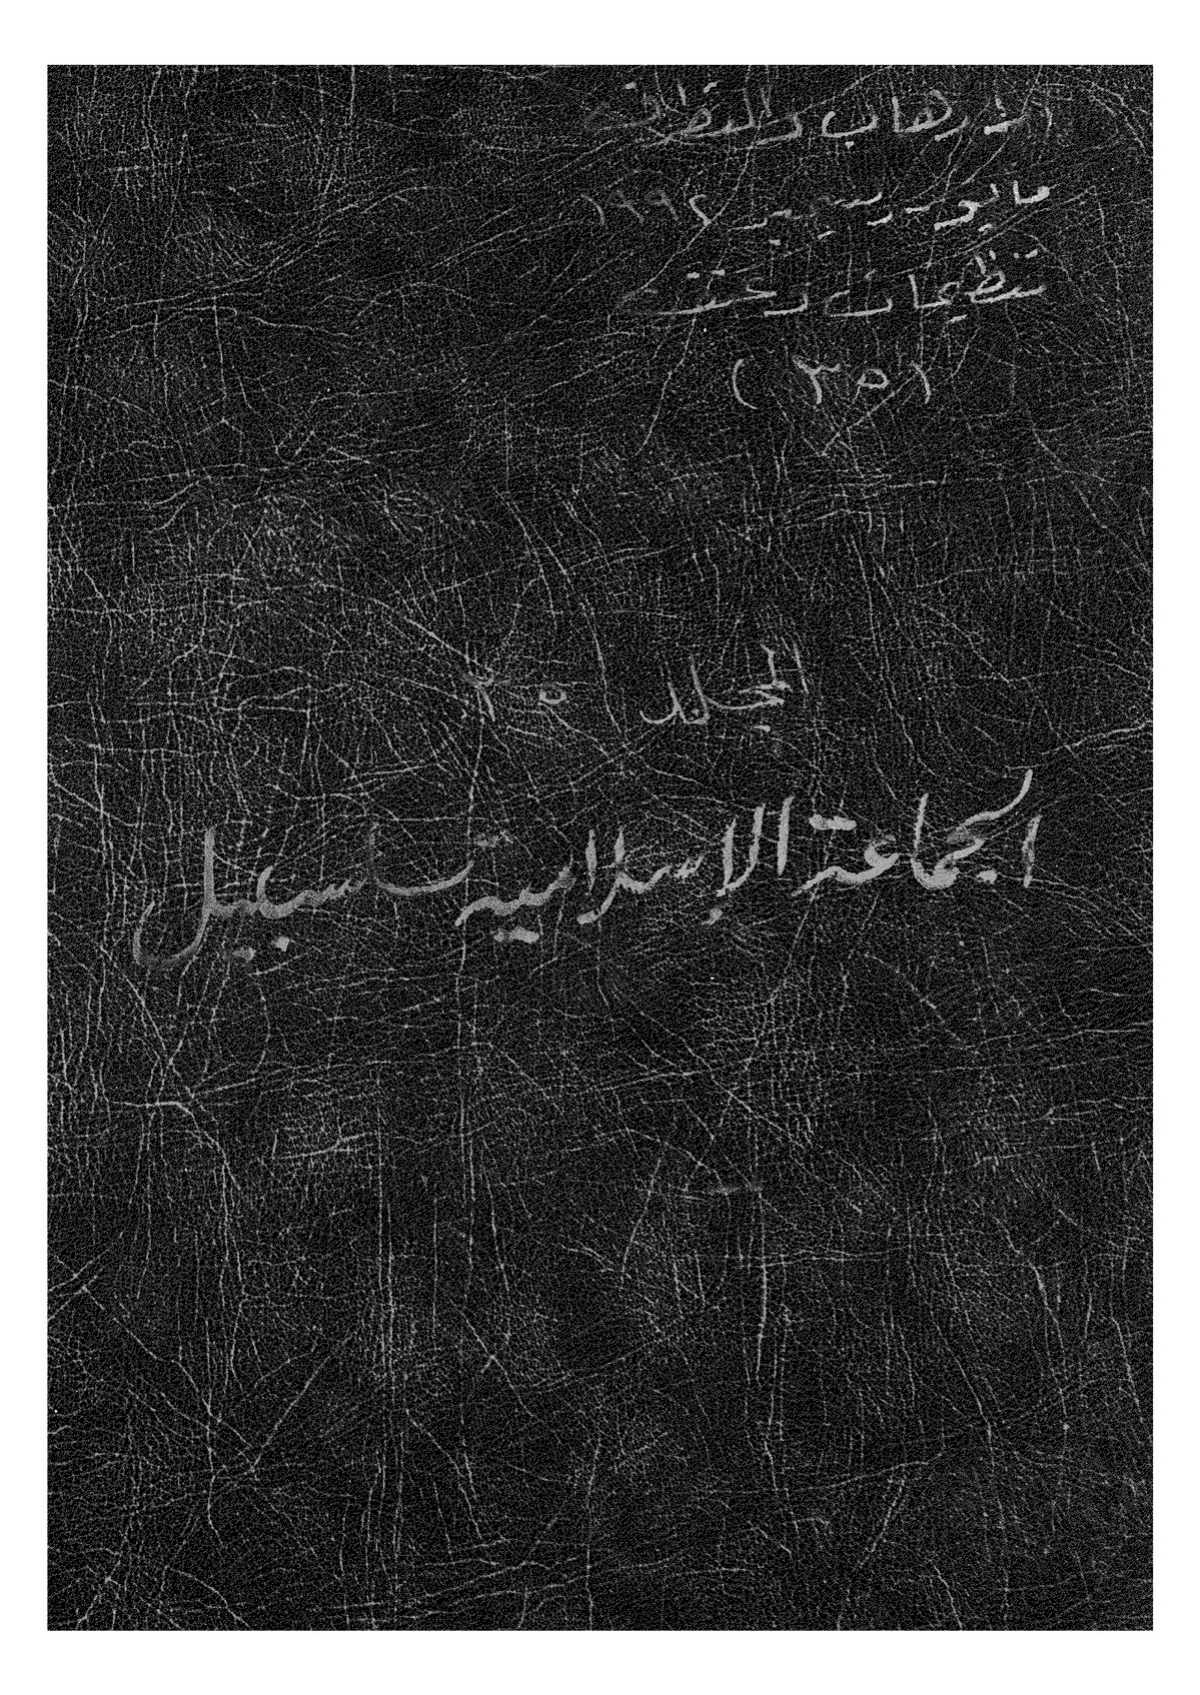 الإرهاب والتطرف
مايو - ديسمبر ١٩٩٤
تنظيمات وعنف
(٣٥)
المجلد ٢٥
الجماعة الإسلامية سلسبيل